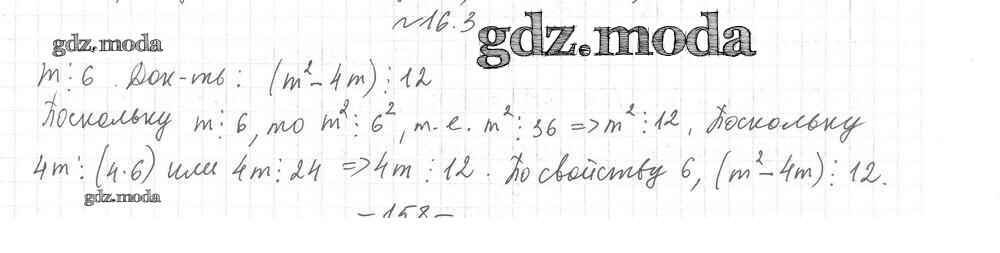 №16.3
gdz.moda
gdz.moda
m⋮6. Док-ть: (m² - 4m)⋮12
Поскольку m⋮6, то m²⋮6², т.е. m²⋮36 => m²⋮12. Поскольку
4m⋮(4·6) или 4m⋮24 => 4m⋮12. По свойству 6, (m² - 4m)⋮12.
gdz.moda
-158-